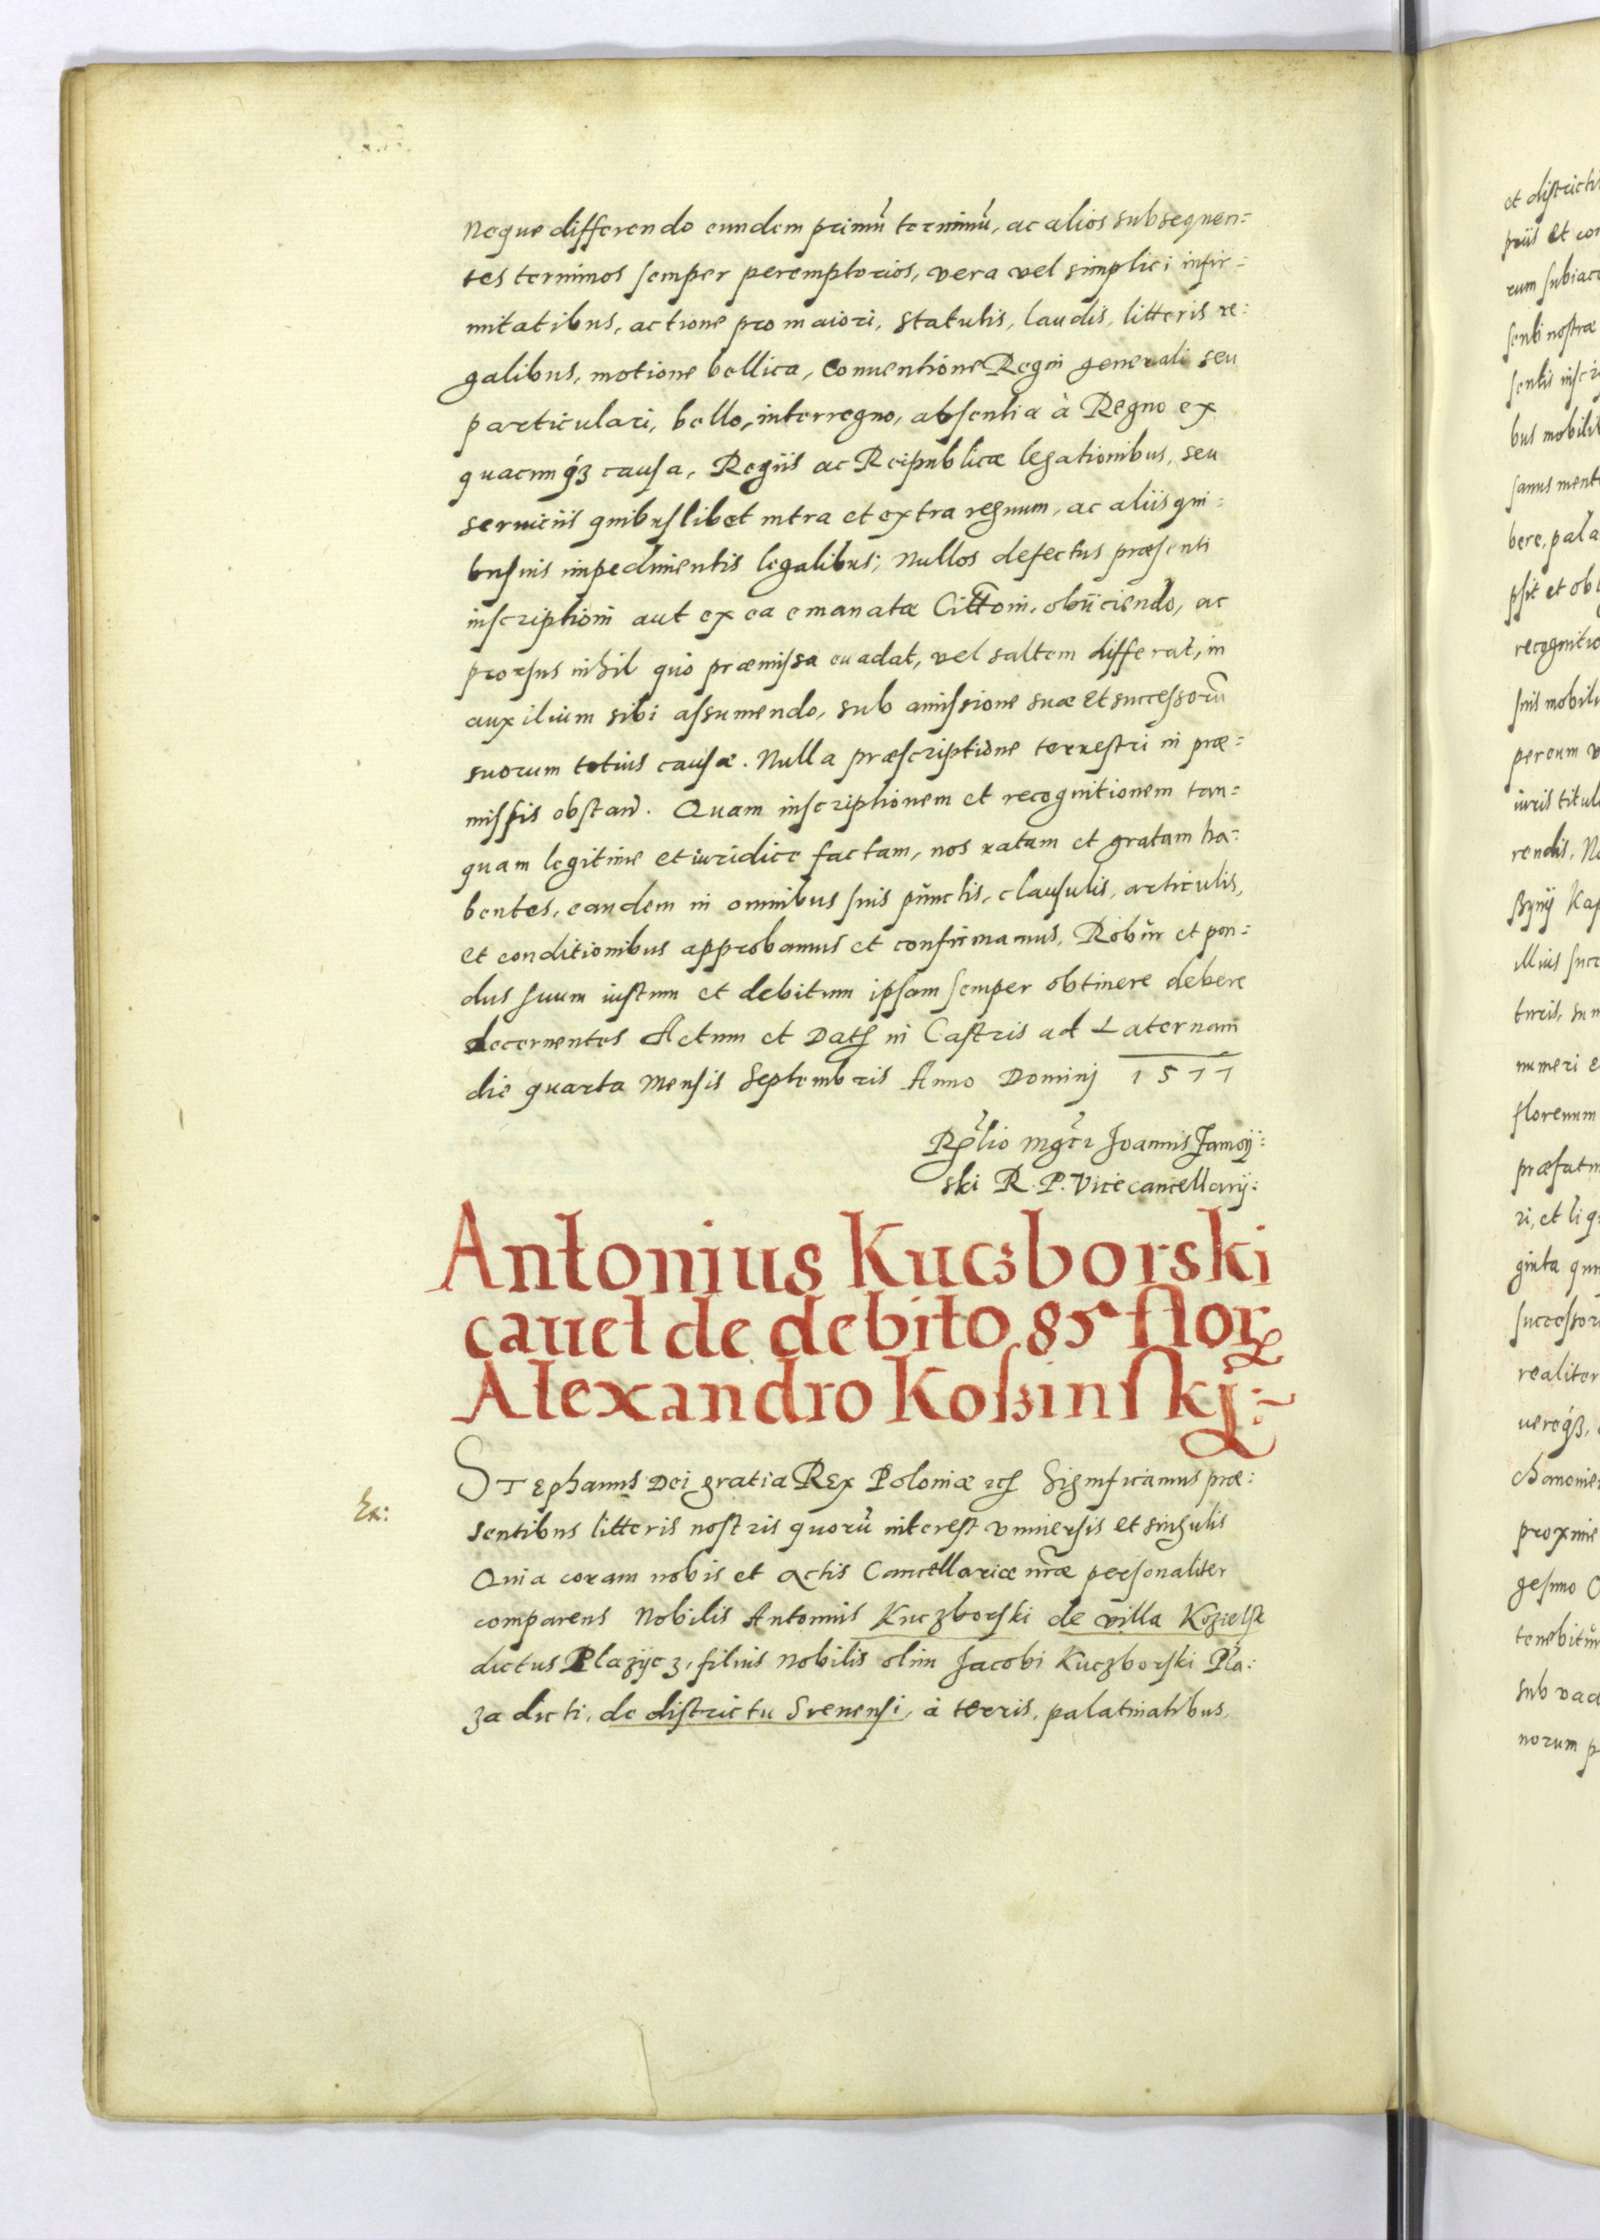 Neque differendo eundem primũ terminũ, ac alios subsequen=
tes terminos semper peremptorios, vera vel simplici infir=
mitatibus, actione pro maiori, statutis, laudis, litteris re=
galibus, motione bellica, conuentione Regni generali seu
particulari, bello, interregno, absentia à Regno ex
quacunq́ꝫ causa, Regiis ac Reipublicæ legationibus, seu
seruiciis quibuslibet intra et extra regnum, ac aliis qui=
busuis impedimentis legalibus; Nullos defectus præsenti
inscriptioni aut ex ea emanatæ Citt̃oni, obiiciendo, ac
prorsus nihil quo præmissa euadat, vel saltem differat, in
auxilium sibi assumendo, sub amissione suæ et successorũ
suorum totius causæ. Nulla præscriptione terrestri in præ=
missis obstañ. Quam inscriptionem et recognitionem tan=
quam legitime et iuridice factam, nos ratam et gratam ha=
bentes, eandem in omnibus suis punctis, clausulis, articulis,
et conditionibus approbamus et confirmamus, Robur et pon=
dus suum iustum et debitum ipsam semper obtinere debere
decernentes Actum et Datꝭ in Castris ad Laternam
die quarta Mensis Septembris Anno Dominj 1577
Rẽlio mgc̃i Joannis Zamoÿ=
ski R. P. Vicecancellarij:
Antonius Kuczborski
cauet de debito 85 florꝝ
Alexandro Koßinskj:~
Ex:
Stephanus Dei gratia Rex Poloniæ ꝛcꝭ Significamus præ=
sentibus litteris nostris quorũ interest vniuersis et singulis
Quia coram nobis et Actis Cancellariæ nr̃æ personaliter
comparens Nobilis Antonius Kuczborski de villa Kozielsk
dictus Plazÿcz, filius Nobilis olim Jacobi Kuczborski Pla=
za dicti, de districtu Srenensi, à terris, palatinatibus,
et districti
priis et con
rum subiace
senti nostræ
sentis inscri
bus mobilib
sanus mente
bere, pala
psit et obl
recognitio
suis mobilib
per eum v
iuris titulo
rendis, No
illius succ
turis, sum
numeri e
florenum
præfatu
ri, et li q
ginta qui
successori
realiter
ueroq́ꝫ,
proxime
gesimo O
tenebitur
sub vad
norum p